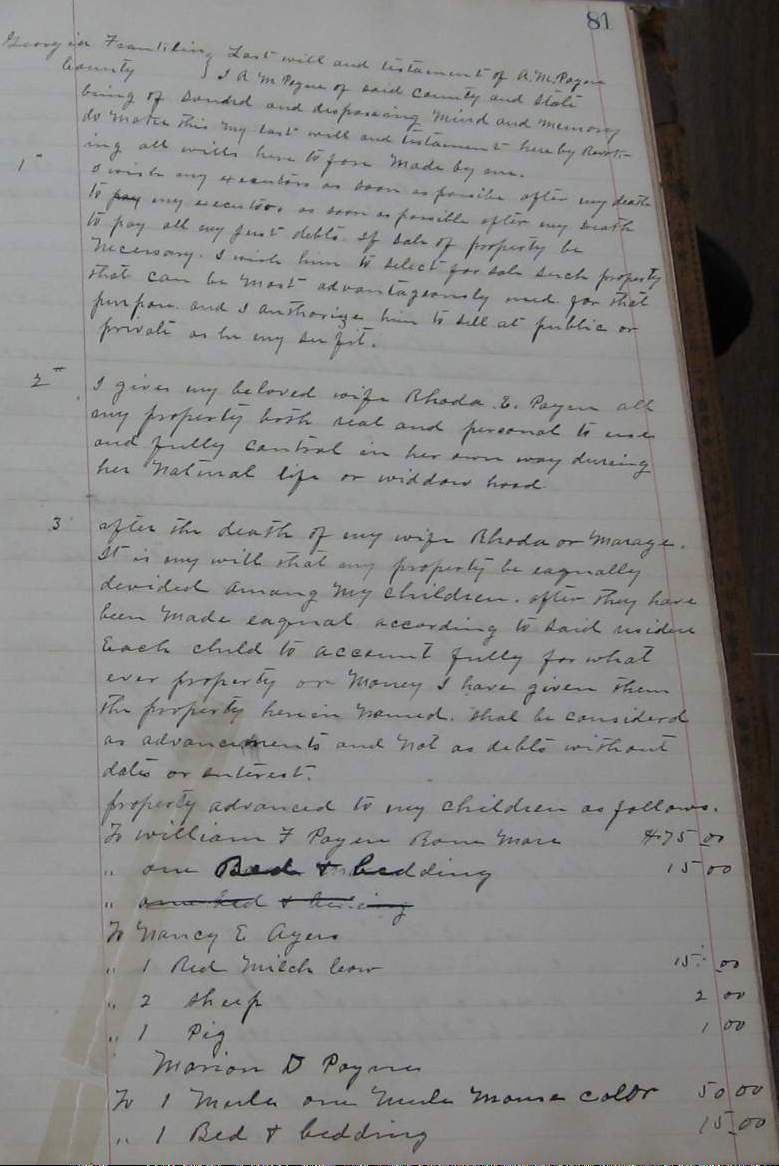 81
Georgia Frankling } Last will and testament of A. M. Payne
County } I A M Payne of said County and State
being of Sounded and dispossing Mind and Memory
do Make this My Last will and testament hereby Revok-
ing all wills here to fore Made by me.
1" I wish my executors as soon as possible after my death
to pay my executors as soon as possible after my death
to pay all my just debts. If sale of property be
Necessary. I wish him to select for sale such property
that can be Most advantageously used for that
purpose. and I authorize him to sell at public or
private as he my see fit.
2" I gives my beloved wife Rhoda. E. Payne all
my property both real and personal to use
and fully control in her own way during
her Natural life or widdow hood
3 after the death of my wife Rhoda or Marage.
It is my will that my property be eaqually
devided Among My children. after they have
been Made eaqual according to said
Each child to account fully for what
ever property or Money I have given them
the property herein Named. shal be considerd
as advancements and Not as debts without
dates or enterest.
property advanced to my children as follows.
To William F Payne Mare $75.00
" one Bed & bedding 15 00
" one bed & bedding
To Nancy E Ayers
" 1 Red Milch Cow 15. 00
" 2 Sheep 2 00
" 1 Pig 1 00
Marion D Payne
To 1 Mule one Mule Mouse color 50 00
" 1 Bed & bedding 15.00